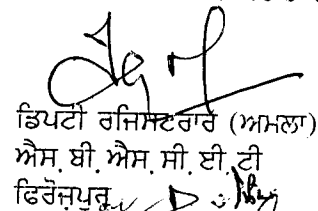 ਡਿਪਟੀ ਰਜਿਸਟਰਾਰ (ਅਮਲਾ)
ਐਸ. ਬੀ. ਐਸ. ਸੀ. ਈ. ਟੀ
ਫਿਰੋਜ਼ਪੁਰ